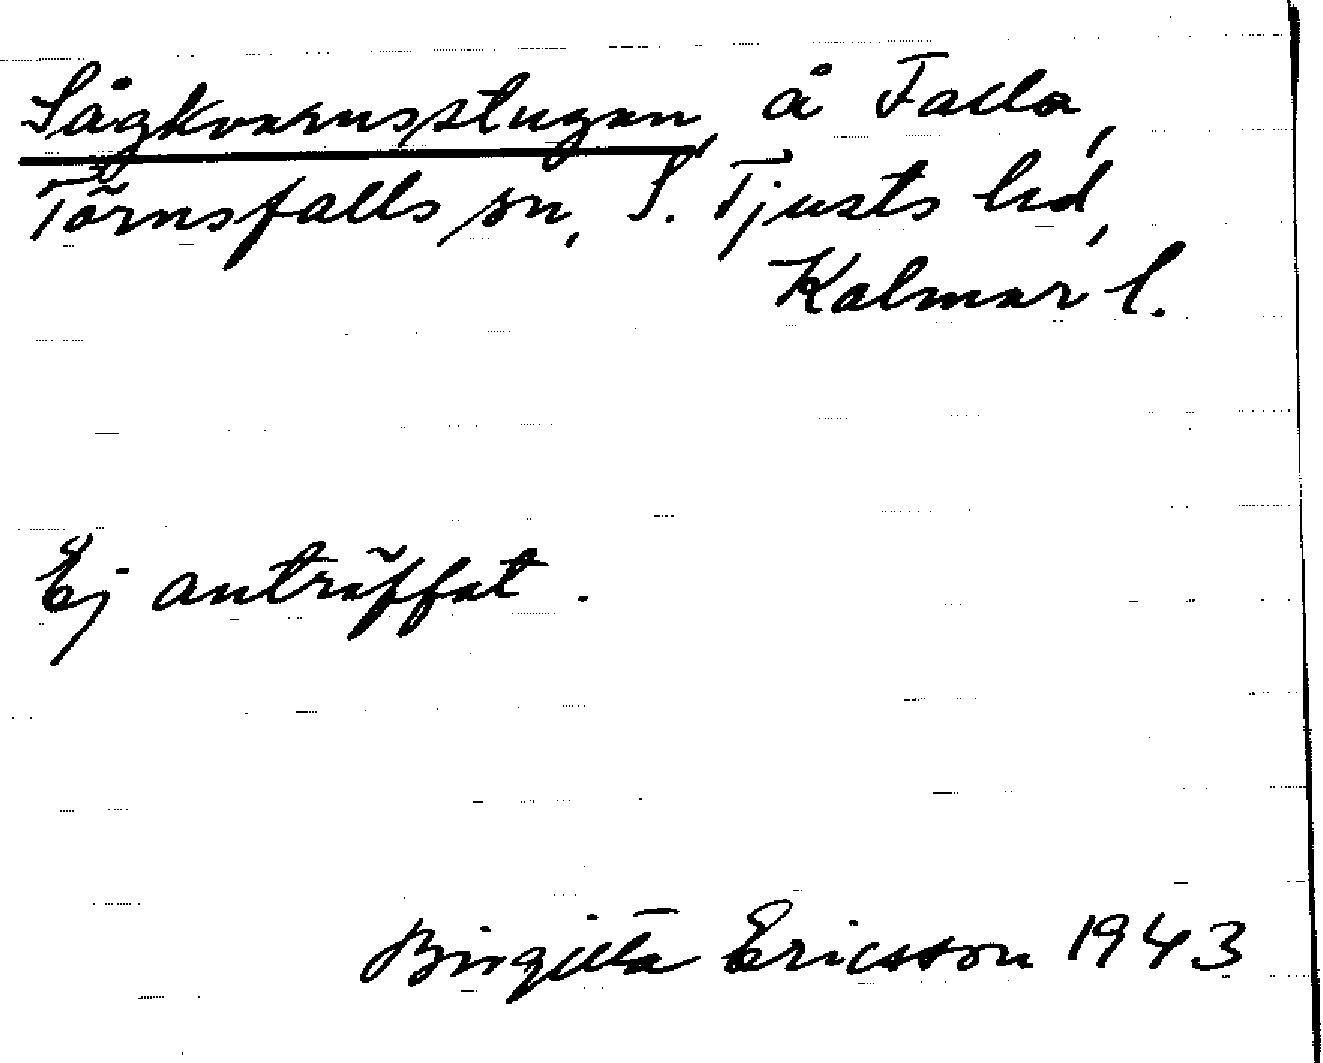 Sågkvarnsstugan, å Falla,
Törnsfalls sn, S. Tjusts hd,
Kalmar l.
Ej anträffat.
Birgitta Ericsson 1943